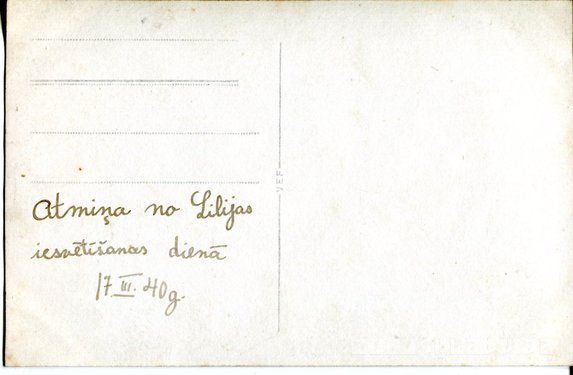 Atmiņa no Lilijas
iesvētīšanas dienā
17 III. 40 g.
VEF